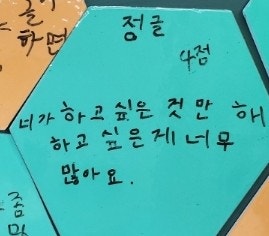 놀이
하면
정글
4점
너가 하고 싶은 것만 해
하고 싶은게 너무
많아요.
좀